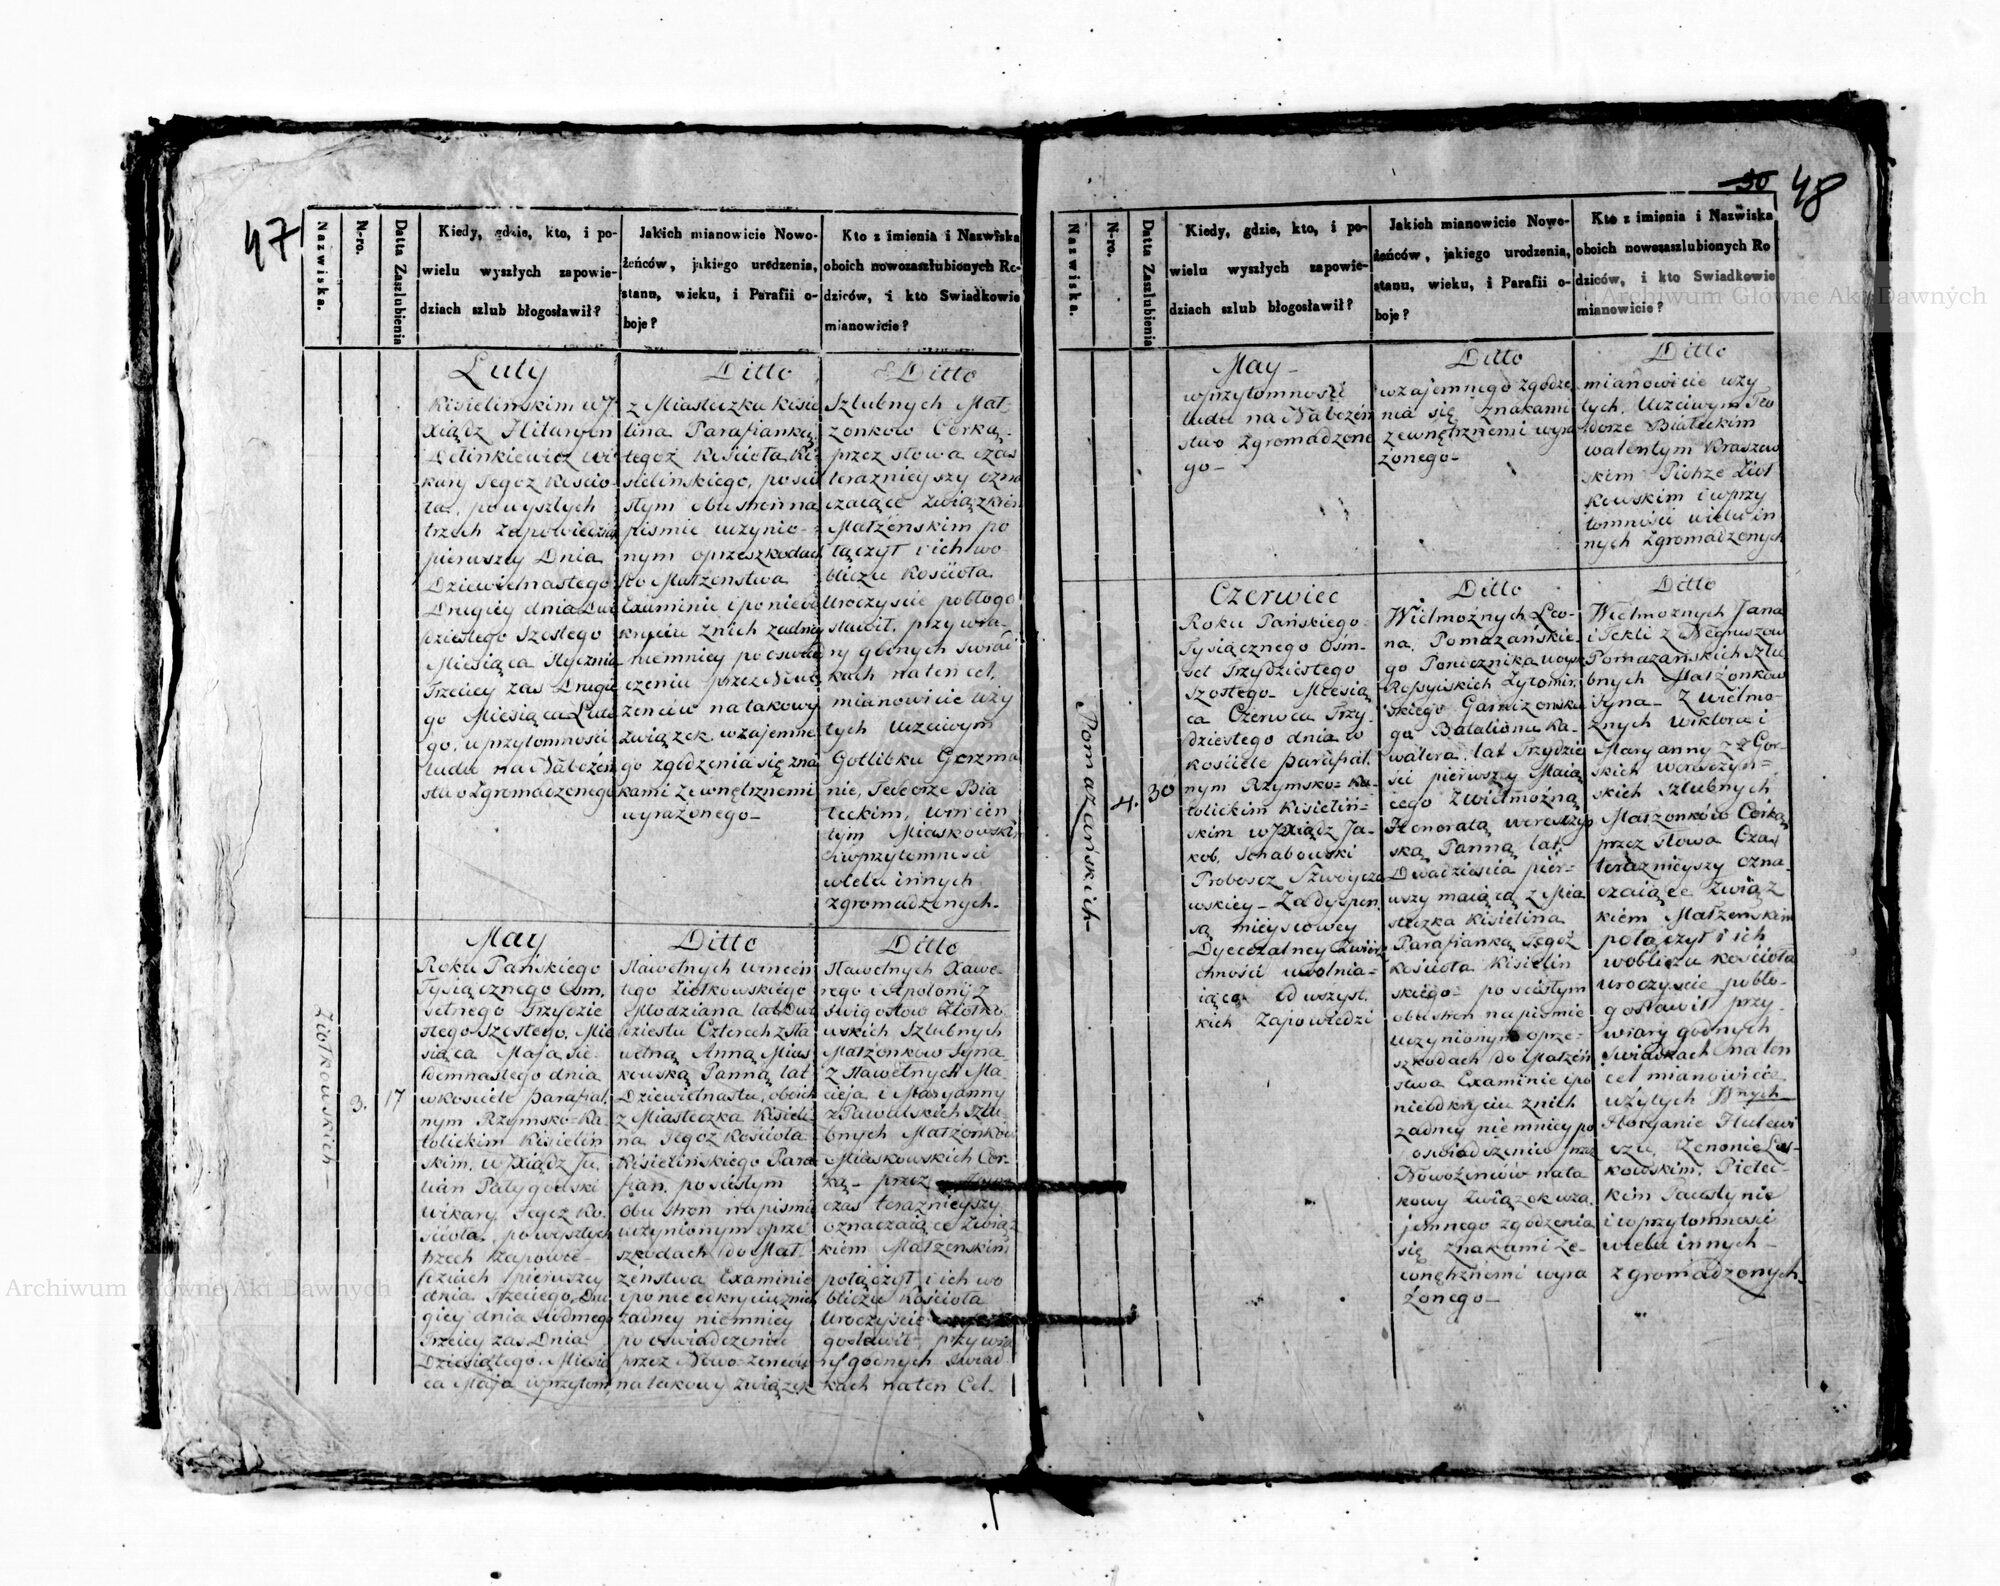 47
Nazwiska.
N-ro.
Datta Zaszlubienia
Kiedy, gdzie, kto, i po-
wielu wyszłych zapowie-
dziach szlub błogosławił?
Jakich mianowicie Nowo-
żeńców, jakiego urodzenia,
stanu, wieku, i Parafii o-
boje?
Kto z imienia i Nazwiska
oboich nowozaszlubionych Ro-
dziców, i kto Swiadkowie
mianowicie?
Luty
Kisielinskim WJ
Xiądz Hilaryon
Wi
kary Tegoż Koscio-
ła, po wyszłych
trzech zapowiedziach
pierwszey Dnia
Dziewietnastego
Drugiey dnia Dwu
dziestego Szostego
Miesiąca Stycznia
Trzeciey zas Drugie
go Miesiąca Lute
go, w przytomnosci
ludu na Nabożen
stwo Zgromadzonego
Ditto
z Miasteczka Kisie
lina Parafianką
tegoż Kościoła Ki
sielinskiego, po sci
słym obustronna
pismie uczynio-
nym o przeszkodach
do Małżenstwa
Examinie i po nieod
kryciu z nich zadney
niemniey po oswiad
czeniu przez Nowo
żencow na takowy
Związek, wzajemne
go zgodzenia się zna
kami zewnętrznemi
wyrażonego-
Ditto
Szlubnych Mał-
żonkow Corką,
przez słowa czas
teraznieyszy ozna
czaiące Związkiem
Małżenskim po
łączył i ich wo
bliczu Kościoła
Uroczyscie pobłogo
sławił, przy wia-
ry godnych swiad
kach na ten cel,
mianowicie uży
tych Uczciwym
Gotlibku
nie, Teodorze Bia
łeckim, Wincen
tym Miaskowskim
i w przytomnosci
wielu innych
zgromadzonych-
Ziołkowskich-
3.
17
May
Roku Pańskiego
Tysiącznego Osm,
setnego Trzydzie
stego Szostego, Mie
siąca Maja Sie-
demnastego dnia
w kosciele Parafial,
nym Rzymsko-Ka
tolickim Kisielin
skim, WJXiądz Ju,
lian Patygowski
Wikary Tegoż Ko,
scioła, po wyszłych
trzech Zapowie-
dziach pierwszey
dnia Trzeciego, Dru
giey dnia Siodmego
Trzeciey zas Dnia
Dziesiątego Miesią
ca Maja w przytom,
Ditto
Sławetnych Wincen
tego Ziołkowskiego
Młodziana lat Dwu
dziestu Czterech z Sła
wetną Anną Mias
kowską Panną lat
Dziewietnastu, oboich
z Miasteczka Kisieli
na Tegoż Kościoła
Kisielińskiego Para
fian, po scisłym
obu stron na pismie
uczynionym o prze
szkodach do Mał-
żeństwa Examinie
i po nieodkryciu z nich
żadney niemniey
po oswiadczeniu
przez Nowo-żencow
na takowy Związek
Ditto
Sławetnych Xawe-
rego i Apolonij z
Swigosłow Ziołko,
wskich Szlubnych
Małżonkow Syna
z Sławetnych Ma-
cieja i Maryanny
z Pawalskich Szlu-
bnych Małżonków
Miaskowskich Cor-
ką- przez
czas teraznieyszy
oznaczaiące Związ
kiem Małżenskim
połączył i ich wo
bliczu Kościoła
Uroczyscie
gosławił- przy wia
ry godnych Swiad
kach na ten Cel-
48
50
Nazwiska.
N-ro.
Datta Zaszlubienia
Kiedy, gdzie, kto, i po-
wielu wyszłych zapowie-
dziach szlub błogosławił?
Jakich mianowicie Nowo-
żeńców, jakiego urodzenia,
stanu, wieku, i Parafii o-
boje?
Kto z imienia i Nazwiska
oboich nowozaszlubionych Ro
dziców, i kto Swiadkowie
mianowicie?
May-
w przytomności
ludu na Nabożeń
stwo Zgromadzone
go-
Ditto
wzajemnego zgodze,
nia się znakami
zewnętrznemi wyra
żonego-
Ditto
mianowicie uży
tych, Uczciwym Teo
dorze Białeckim
Walentym Kraszew
skim Piotrze Zioł
kowskim i w przy
tomności wielu in
nych Zgromadzonych
Pomazańskich-
4.
30
Czerwiec
Roku Pańskiego
Tysiącznego Ośm-
set Trzydziestego
Szostego- Miesią
ca Czerwca Trzy
dziestego dnia w
kościele Parafial,
nym Rzymsko=Ka-
tolickim Kisieliń=
skim WJXiądz Ja-
kob, Schabowski
Probosz
wskiey- Za dyspen,
są mieyscowey
Dyecezalney Zwierz
chności uwolnia=
iącą od wszyst,
kich Zapowiedzi
Ditto
Wielmożnych Leo-
na, Pomazańskie-
go Porucznika woysk
Rossyiskich Zytomir,
skiego Garnizonsko
go Bataliona Ka-
walera lat Trzydzie
sci pierwszy Maią
cego z Wielmożną
Honoratą Wereszczyń
ską Panną lat,
Dwadziescia pier-
wszy maiącą z Mia
steczka Kisielina
Parafianką Tegoż
kościoła Kisielin
skiego- po scisłym
obustron na pismie
uczynionym o prze-
szkodach do Małżeń
stwa Examinie i po
nieodkryciu z nich
żadney niemniey po
oswiadczeniu przez
Nowożeńców na ta
kowy Związek wza,
jemnego zgodzenia
się znakami ze-
wnętrznemi wyra
żonego-
Ditto
Wielmożnych Jana
i Tekli z Negruszow
Pomazańskich Szlu,
bnych Małżonków
Syna- z Wielmo-
żnych Wiktora i
Maryanny z Gor-
skich Wereszczyń=
skich Szlubnych
Małżonków Corką
przez słowa Czas
teraznieyszy ozna-
czaiące Związ
kiem Małżenskim
połączył i ich
wobliczu kościoła
Uroczyscie pobło-
gosławił przy,
wiary godnych
Swiadkach na ten
cel mianowicie
użytych Wnych
Floryanie Hulewi
czu, Zenonie Les-
kowskim,
kim Faustynie
i w przytomnosci
wielu innych-
zgromadzonych
Archiwum Główne Akt Dawnych
Archiwum Główne Akt Dawnych